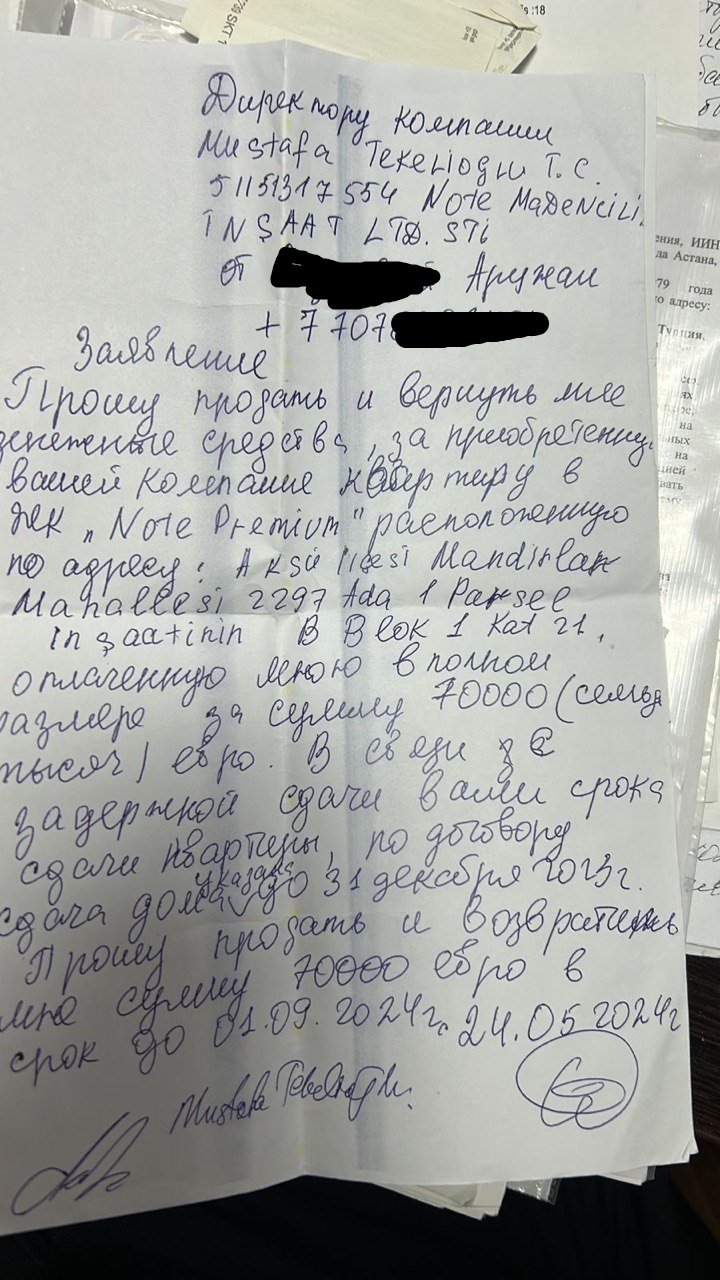 Директору компании
Mustafa Tekelioglu T.C.
51151317554 Note Madencili
İNŞAAT LTD. STİ
от Аружан
+ 7707
Заявление
Прошу продать и вернуть мне
денежные средства, за приобретенную
вашей компание квартиру в
ЖК „Note Premium" расположенную
по адресу: Aksu ilcesi Mandirlar
Mahallesi 2297 Ada 1 Parsel
inşaatinin B Blok 1 Kat 21,
оплаченную мною в полном
размере за сумму 70000 (семьде
тысяч) евро. В связи с
задержкой сдачи вами срока
сдачи квартиры, по договору
сдача дома указана до 31 декабря 2023г.
Прошу продать и возвратить
мне сумму 70000 евро в
срок до 01.09.2024г. 24.05 2024г
Mustafa Tekelioglu.
ения, ИИН
да Астана,
79 года
о адресу:
Турция,
на
ных
на
цией
вать
:18